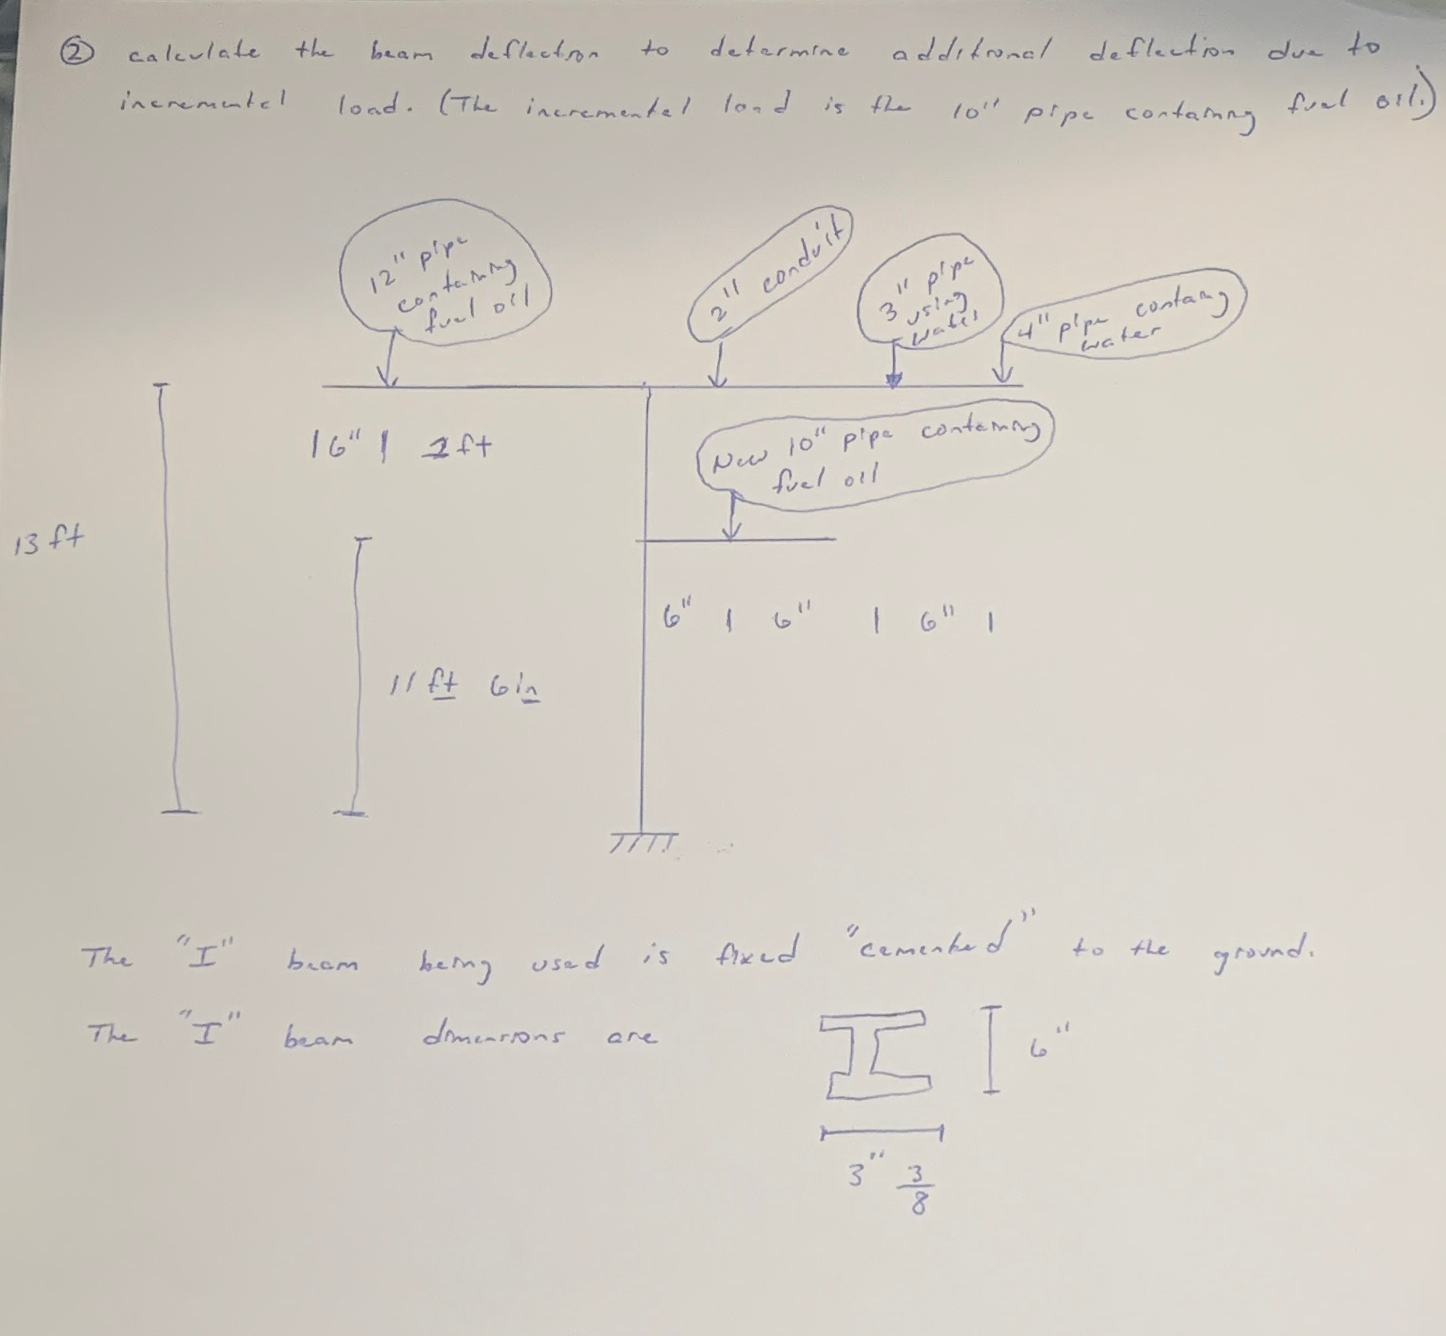 ② calculate the beam deflection to determine additional deflection due to
incremental load. (The incremental load is the 10" pipe containing fuel oil.)
12" pipe
containing
fuel oil
2" conduit
3" pipe
using
water
4" pipe containg
water
16" | 2 ft
New 10" pipe containing
fuel oil
13 ft
6" | 6" | 6" |
11 ft 6in
The "I" beam being used is fixed "cemented" to the ground.
The "I" beam dimensions are
6"
3" 3/8